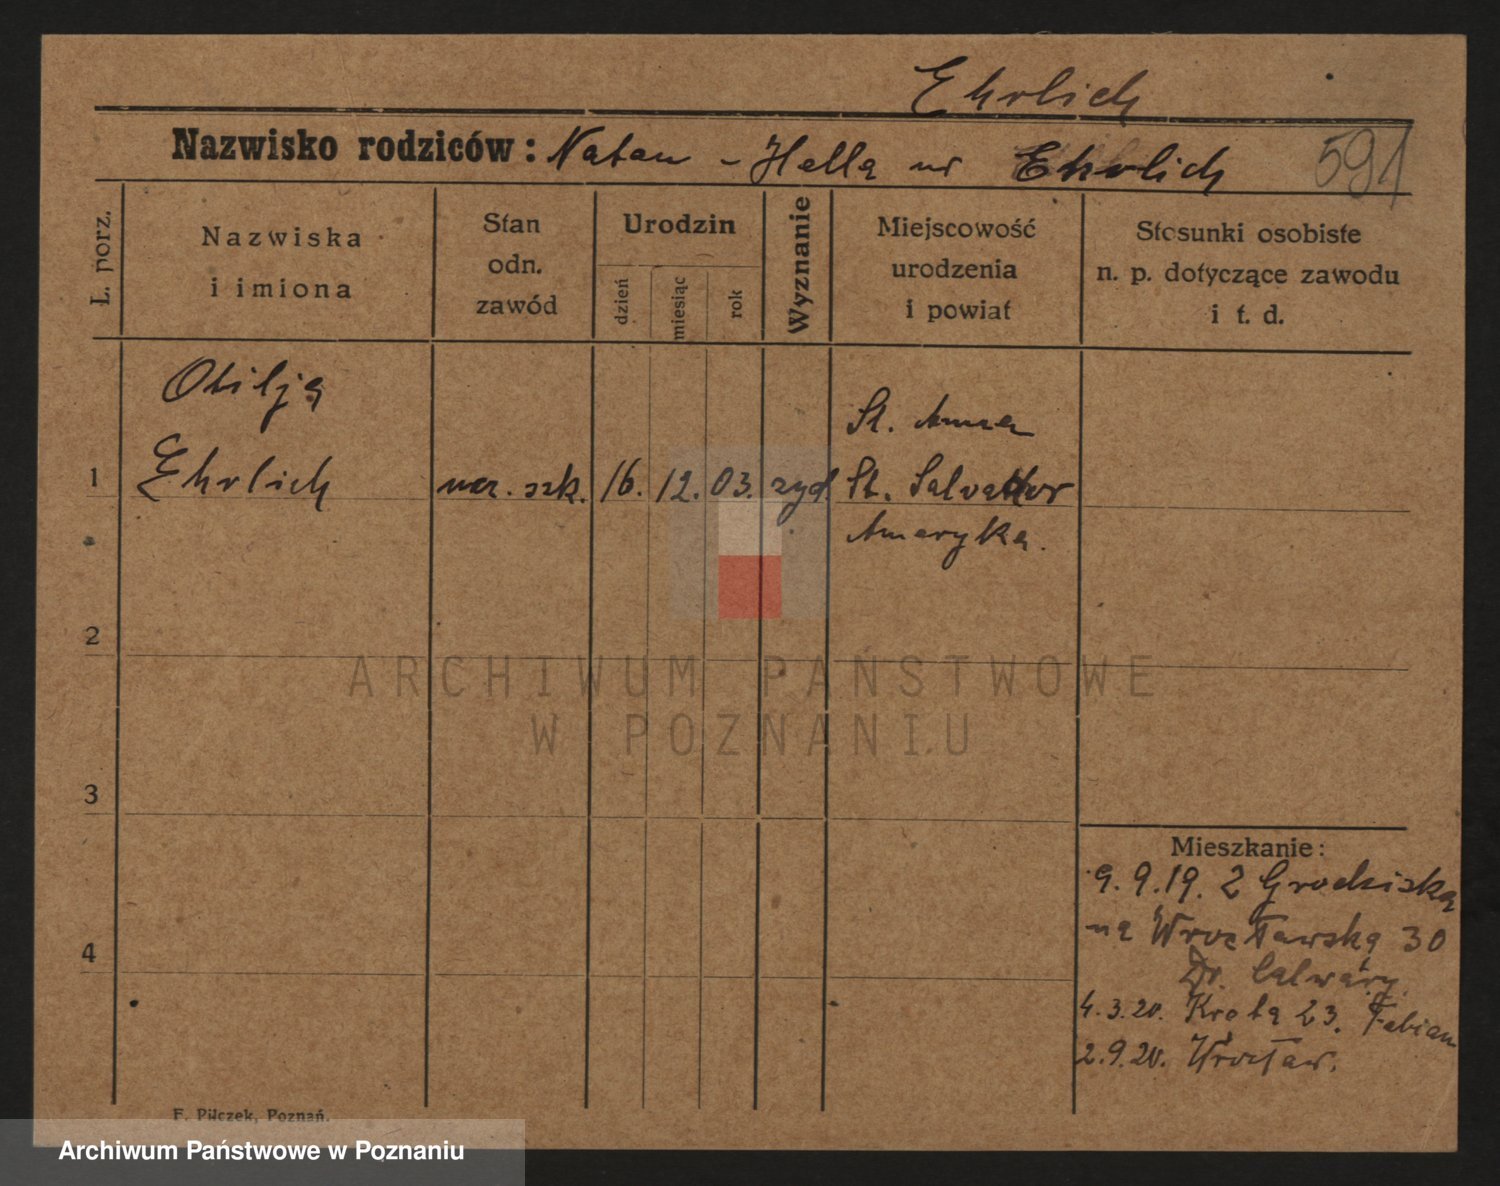 Ehrlich
Nazwisko rodziców: Natan - Hella ur Ehrlich
591
L. porz.
Nazwiska
i imiona
Stan
odn.
zawód
Urodzin
dzień
miesiąc
rok
Wyznanie
Miejscowość
urodzenia
i powiat
Stosunki osobiste
n. p. dotyczące zawodu
i t. d.
Otilja
St. Anna
1 Ehrlich ucz. szk. 16. 12. 03. zyd. St. Salvattor
Ameryka.
2
ARCHIWUM PAŃSTWOWE
W POZNANIU
3
Mieszkanie:
9.9.19. z Grodziska
na Wrocławska 30
4
Dr. Calwary.
4.3.20. Kreta 23. Fabian
2.9.20. Wrocław.
F. Pilczek, Poznań.
Archiwum Państwowe w Poznaniu